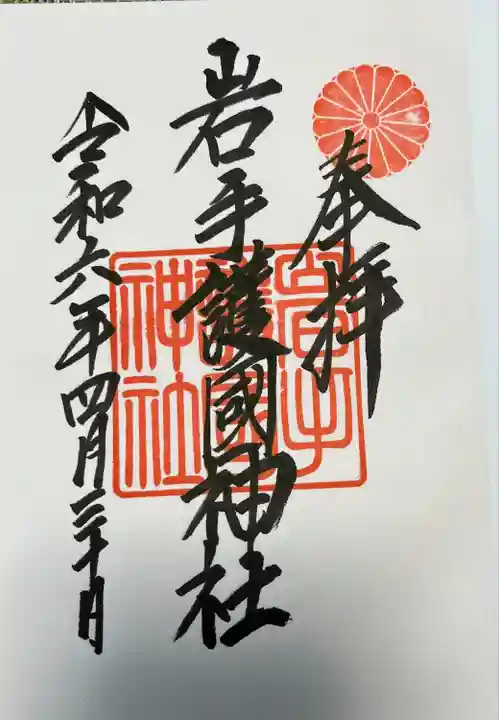 奉拝
岩手護國神社
令和六年四月二十日
岩手
護國
神社